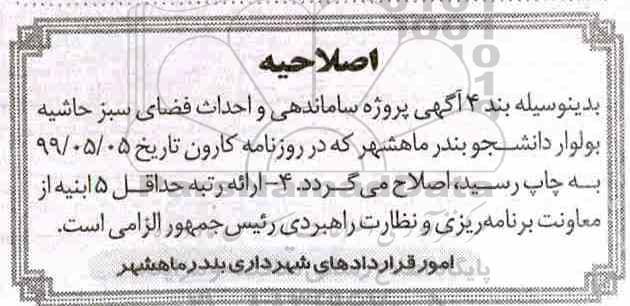 اصلاحیه
بدینوسیله بند ۴ آگهی پروژه ساماندهی و احداث فضای سبز حاشیه
بولوار دانشجو بندر ماهشهر که در روزنامه کارون تاریخ ۹۹/۰۵/۰۵
به چاپ رسید، اصلاح می‌گردد. ۴-ارائه رتبه حداقل ۵ ابنیه از
معاونت برنامه‌ریزی و نظارت راهبردی رئیس جمهور الزامی است.
امور قراردادهای شهرداری بندر ماهشهر